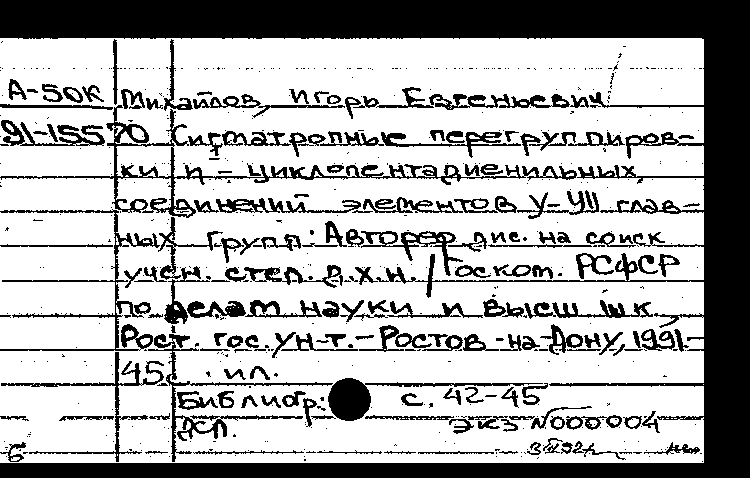 А-50К Михайлов, Игорь Евгеньевич
91-15570 Сигматропные перегруппиров-
ки η¹ - циклопентадиенильных
соединений элементов У-УII глав-
ных групп: Автореф дис. на соиск
учен. степ. д.х.н. / Госком. РСФСР
по делам науки и высш шк.,
Рост. гос. ун-т. - Ростов-на-Дону, 1991.-
45с. ил.
Библиогр: с. 42-45
ДСП. экз N000004
Б